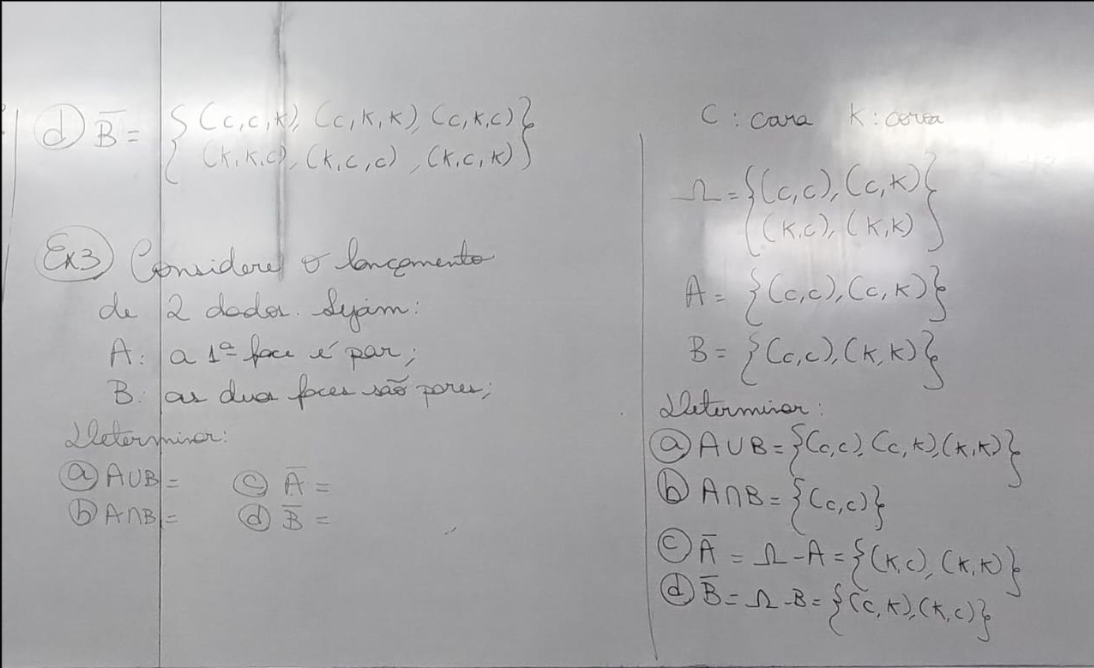 d) B̅ = {(c,c,k), (c,k,k), (c,k,c)
(k,k,c), (k,c,c), (k,c,k)}
Ex3) Considere o lançamento
de 2 dados. Sejam:
A: a 1ª face é par;
B: as duas faces são pares;
Determinar:
a) A∪B = c) A̅ =
b) A∩B = d) B̅ =
C: cara K: coroa
Ω = {(c,c), (c,k)
(k,c), (k,k)}
A = {(c,c), (c,k)}
B = {(c,c), (k,k)}
Determinar:
a) A∪B = {(c,c), (c,k), (k,k)}
b) A∩B = {(c,c)}
c) A̅ = Ω - A = {(k,c), (k,k)}
d) B̅ = Ω - B = {(c,k), (k,c)}